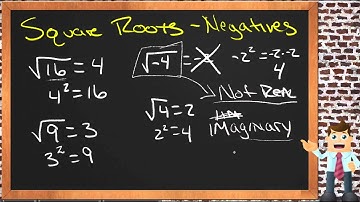 Square Roots - Negatives
√16 = 4
4² = 16
√9 = 3
3² = 9
√-4 = -2
-2² = -2·-2
4
√4 = 2
2² = 4
Not Real
imaginary